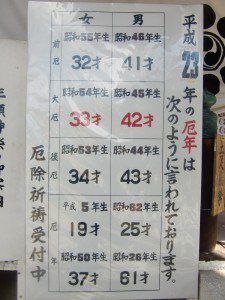 平成23年の厄年は
次のように言われております。
女 男
前厄 昭和55年生 昭和46年生
32才 41才
大厄 昭和54年生 昭和45年生
33才 42才
後厄 昭和53年生 昭和44年生
34才 43才
厄年 平成5年生 昭和62年生
19才 25才
昭和50年生 昭和26年生
37才 61才
厄除祈祷受付中